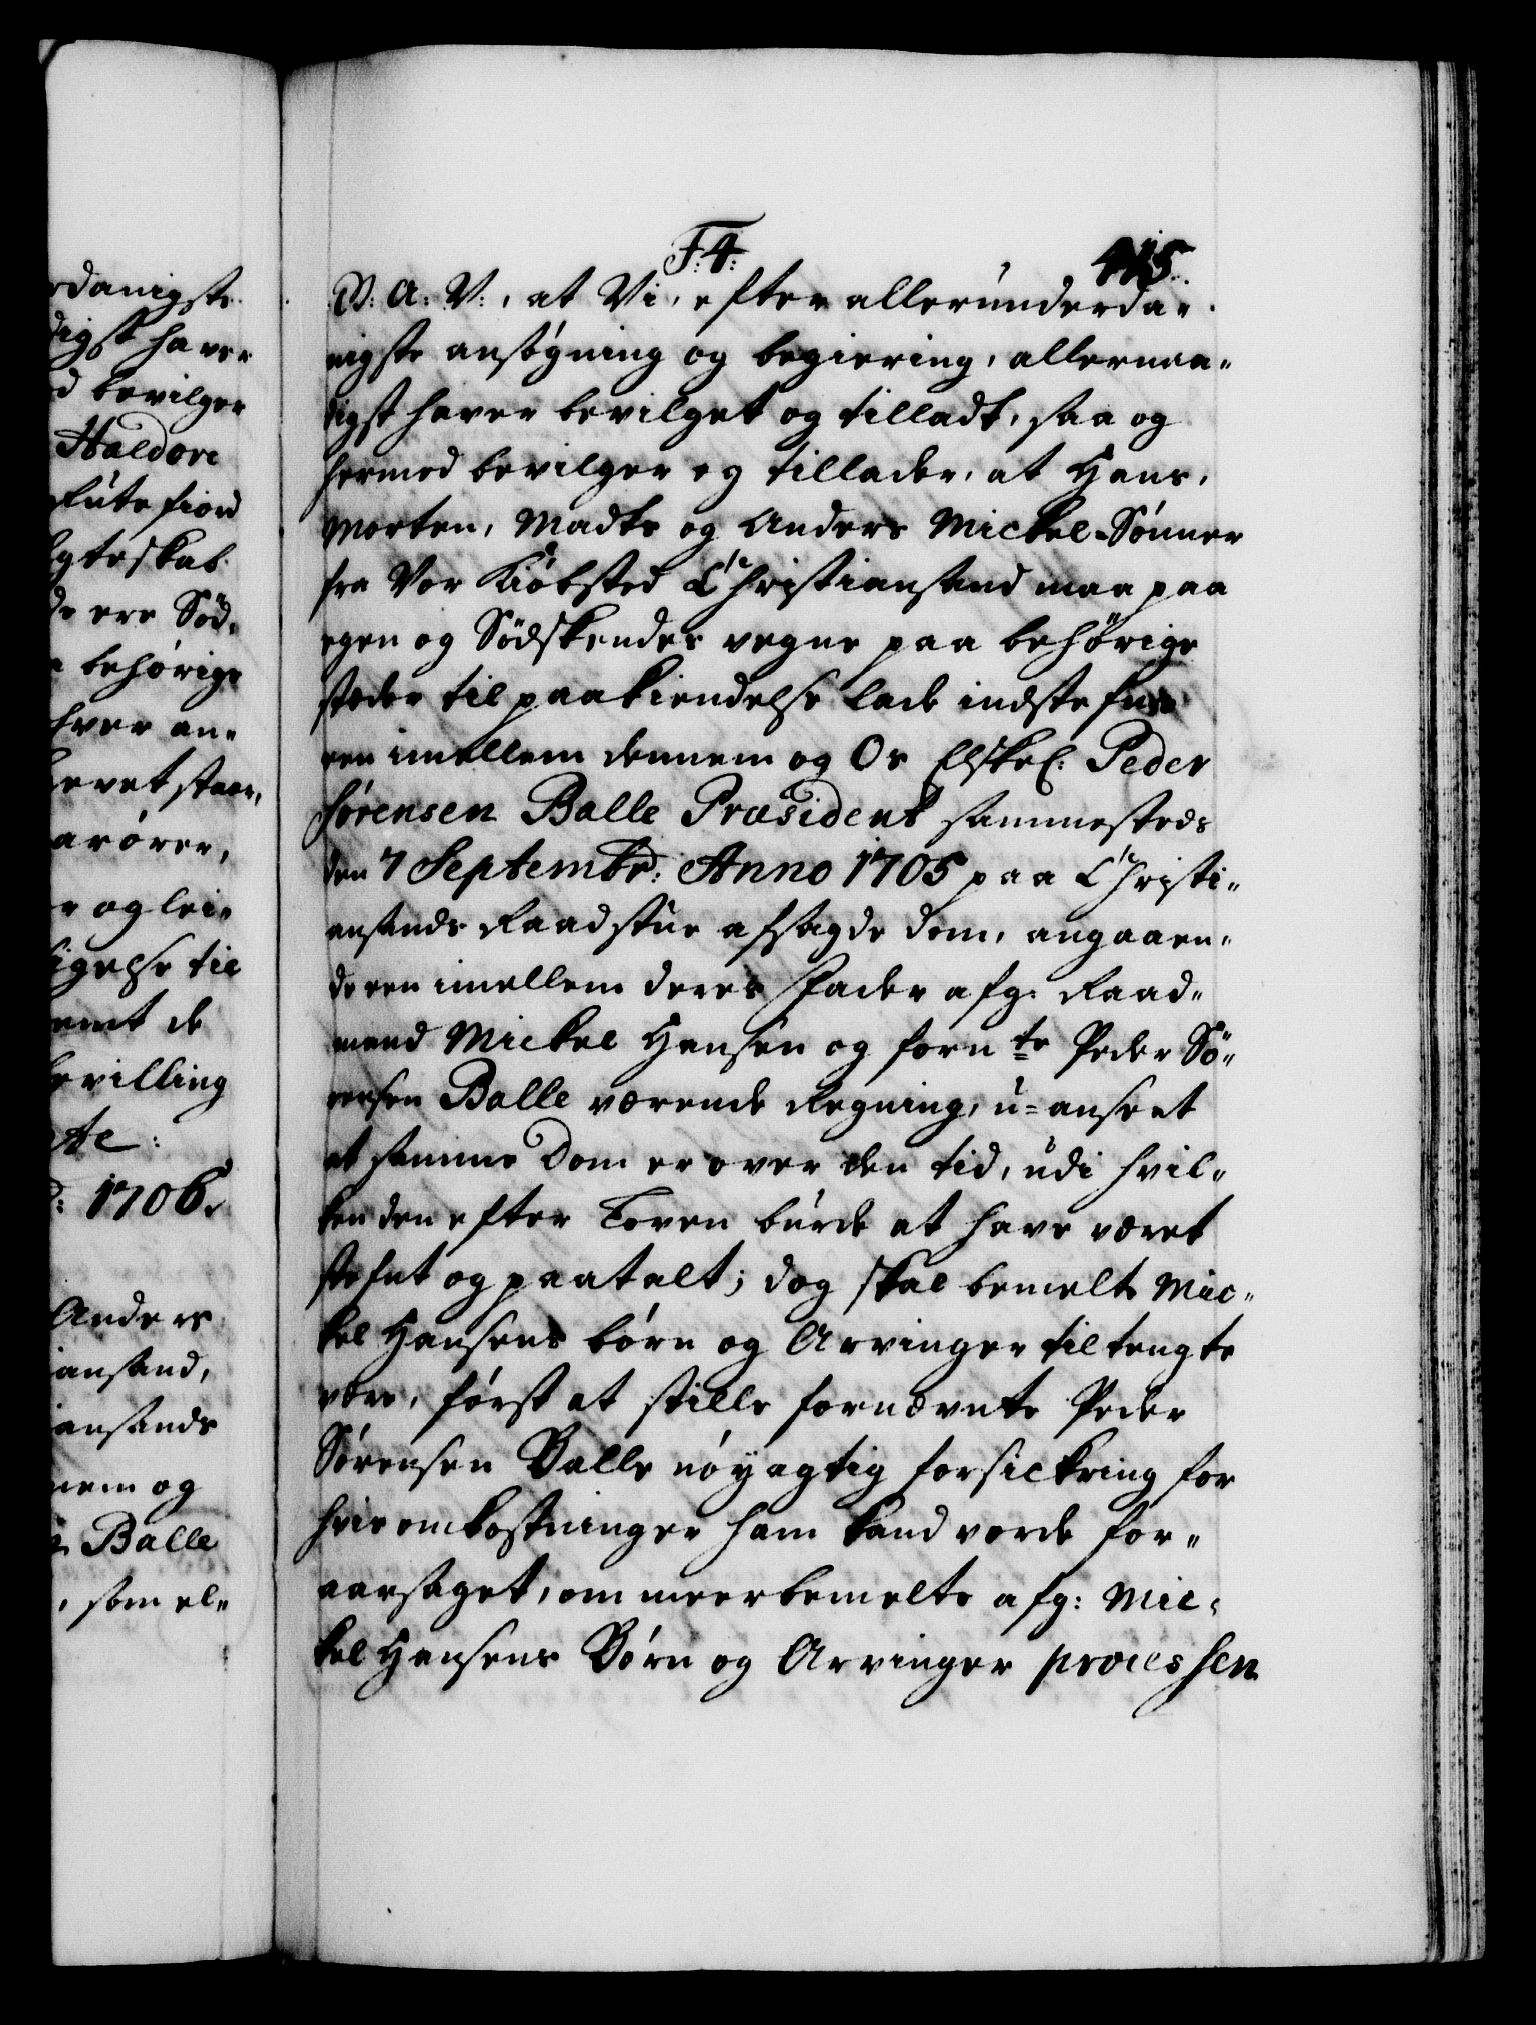 rdanigste
digst haver
d bevilger
Haldore
lutefiord
ægteskab
de ere Sød-
n behörige
hver an-
levet staar,
arörer,
r og lei-
ligelse til
emt de
Bevilling
te:
: 1706.
Anders
iansand,
iansands
nem og
n Balle
, som el-
F: 4: 415.
V: A: V:, at Vi, efter allerunderda-
nigste ansøgning og begiering, allernaa-
digst haver bevilget og tilladt, saa og
hermed bevilger og tillader, at Hans,
Morten, Madts og Anders Mickel-Sønner
fra Vor Kiøbsted Christiansand maa paa
egen og Södskendes vegne paa behörige
stæder til paakiendelse lade indstefne
een imellem dennem og Os Elskel: Peder
Sørensen Balle Præsident sammesteds
den 7 Septembr: Anno 1705 paa Christi-
ansands Raadstue afsagde Dom, angaaen-
de een imellem deres Fader afg: Raad-
mand Mickel Hansen og forn te Peder Sö-
rensen Balle værende Regning, u-anseet
at samme Dom er over den tid, udi hvil-
ken den efter Loven burde at have været
stefnt og paatalt; dog skal bemelte Mic-
kel Hansens börn og Arvinger tiltengte
være, först at stille fornævnte Peder
Sørensen Balle nöyagtig forsickring for
hvis omkostninger ham kand vorde for-
aarsaget, om meerbemelte afg: Mic-
kel Hansens Børn og Arvinger processen